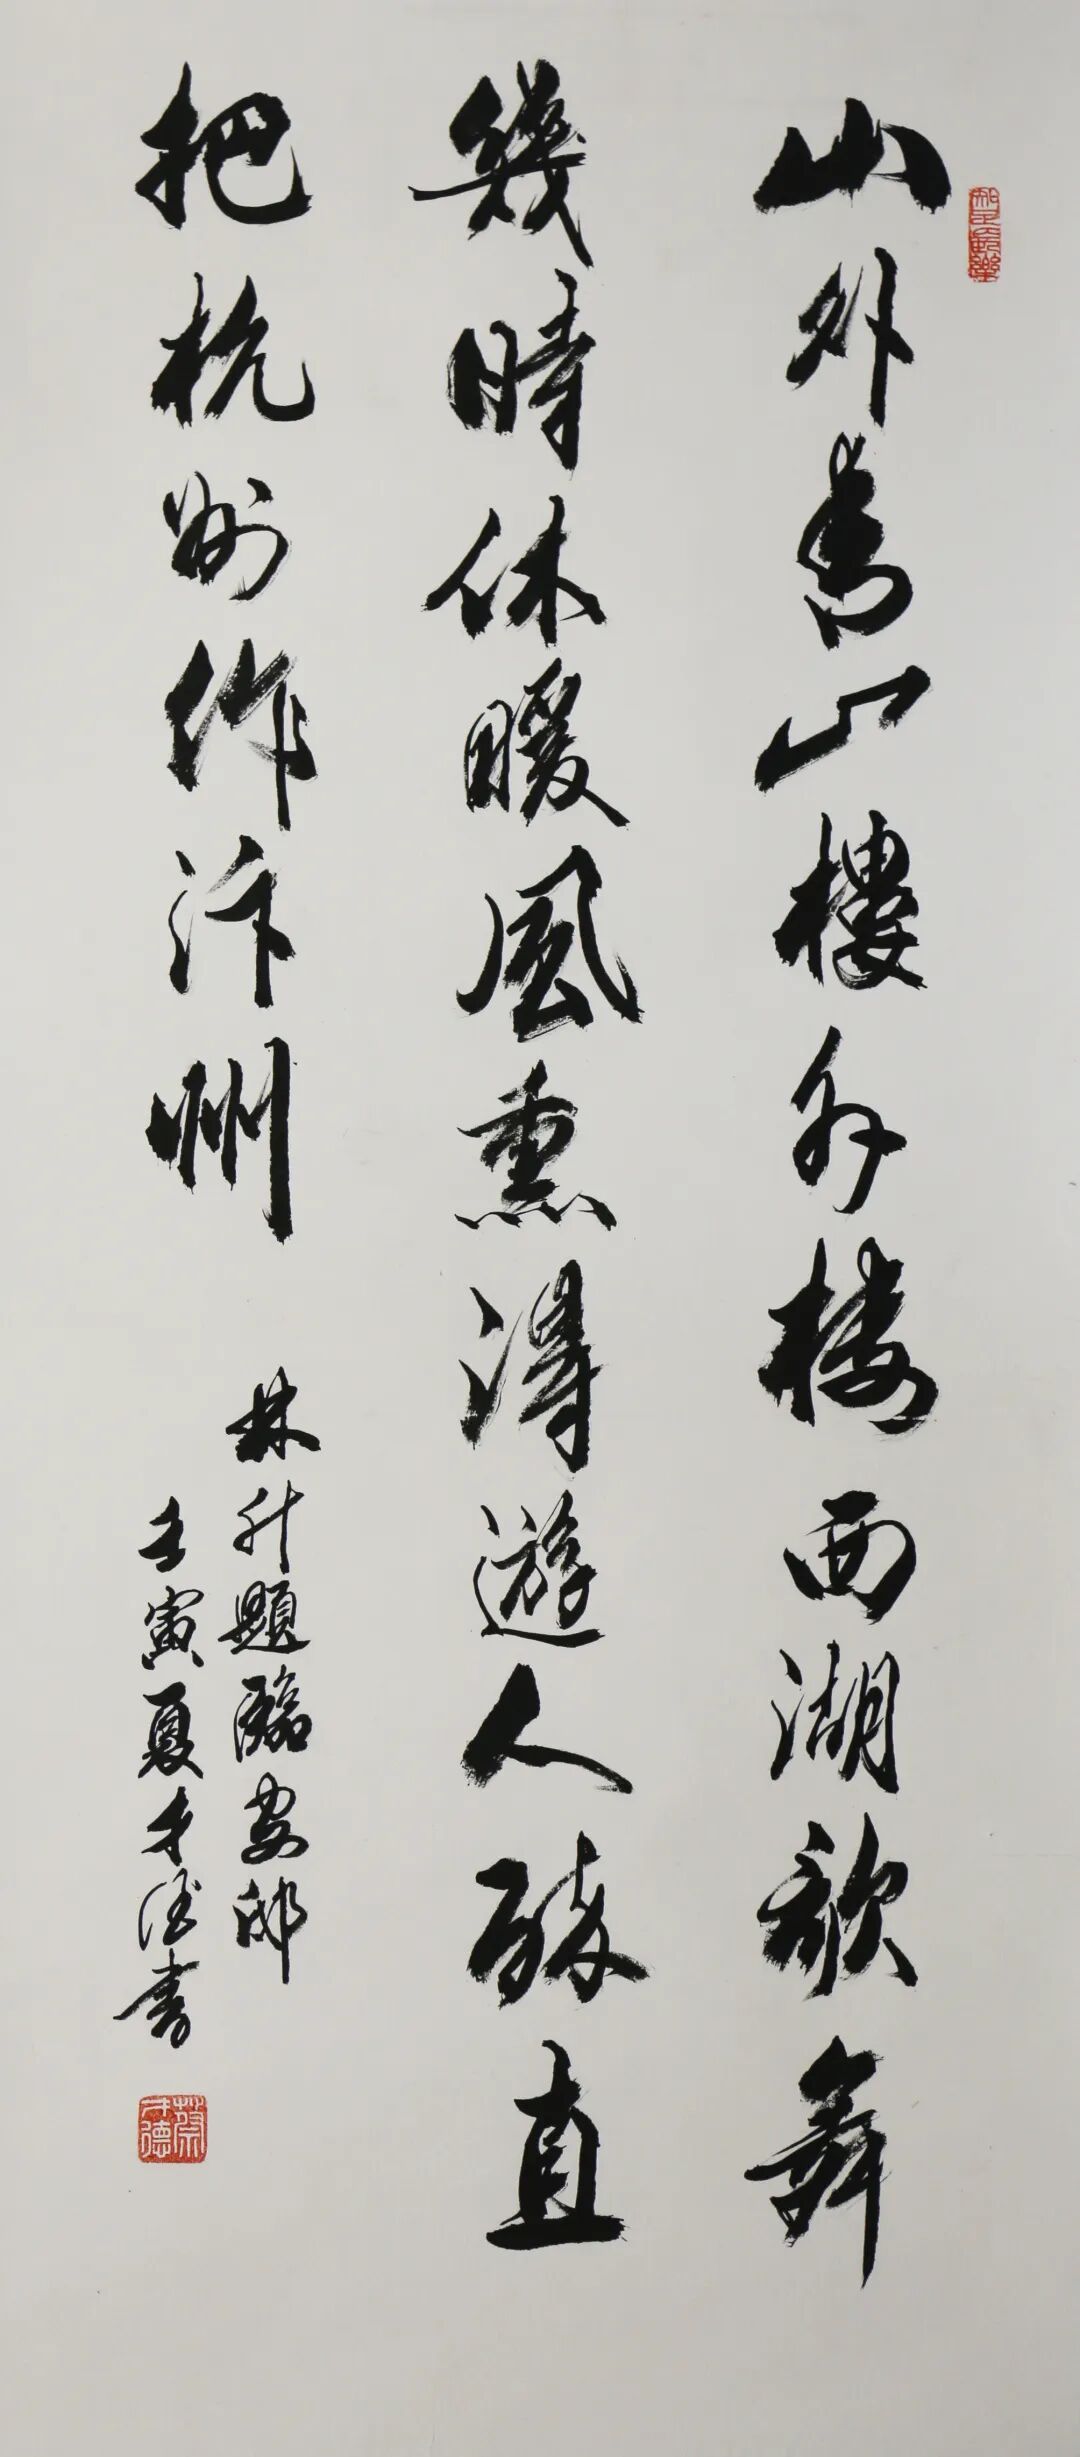 知足常樂
山外青山樓外楼西湖歌舞
幾時休暖風熏得遊人醉直
把杭州作汴州
林升題臨安邸
壬寅夏才德書
蔡才德